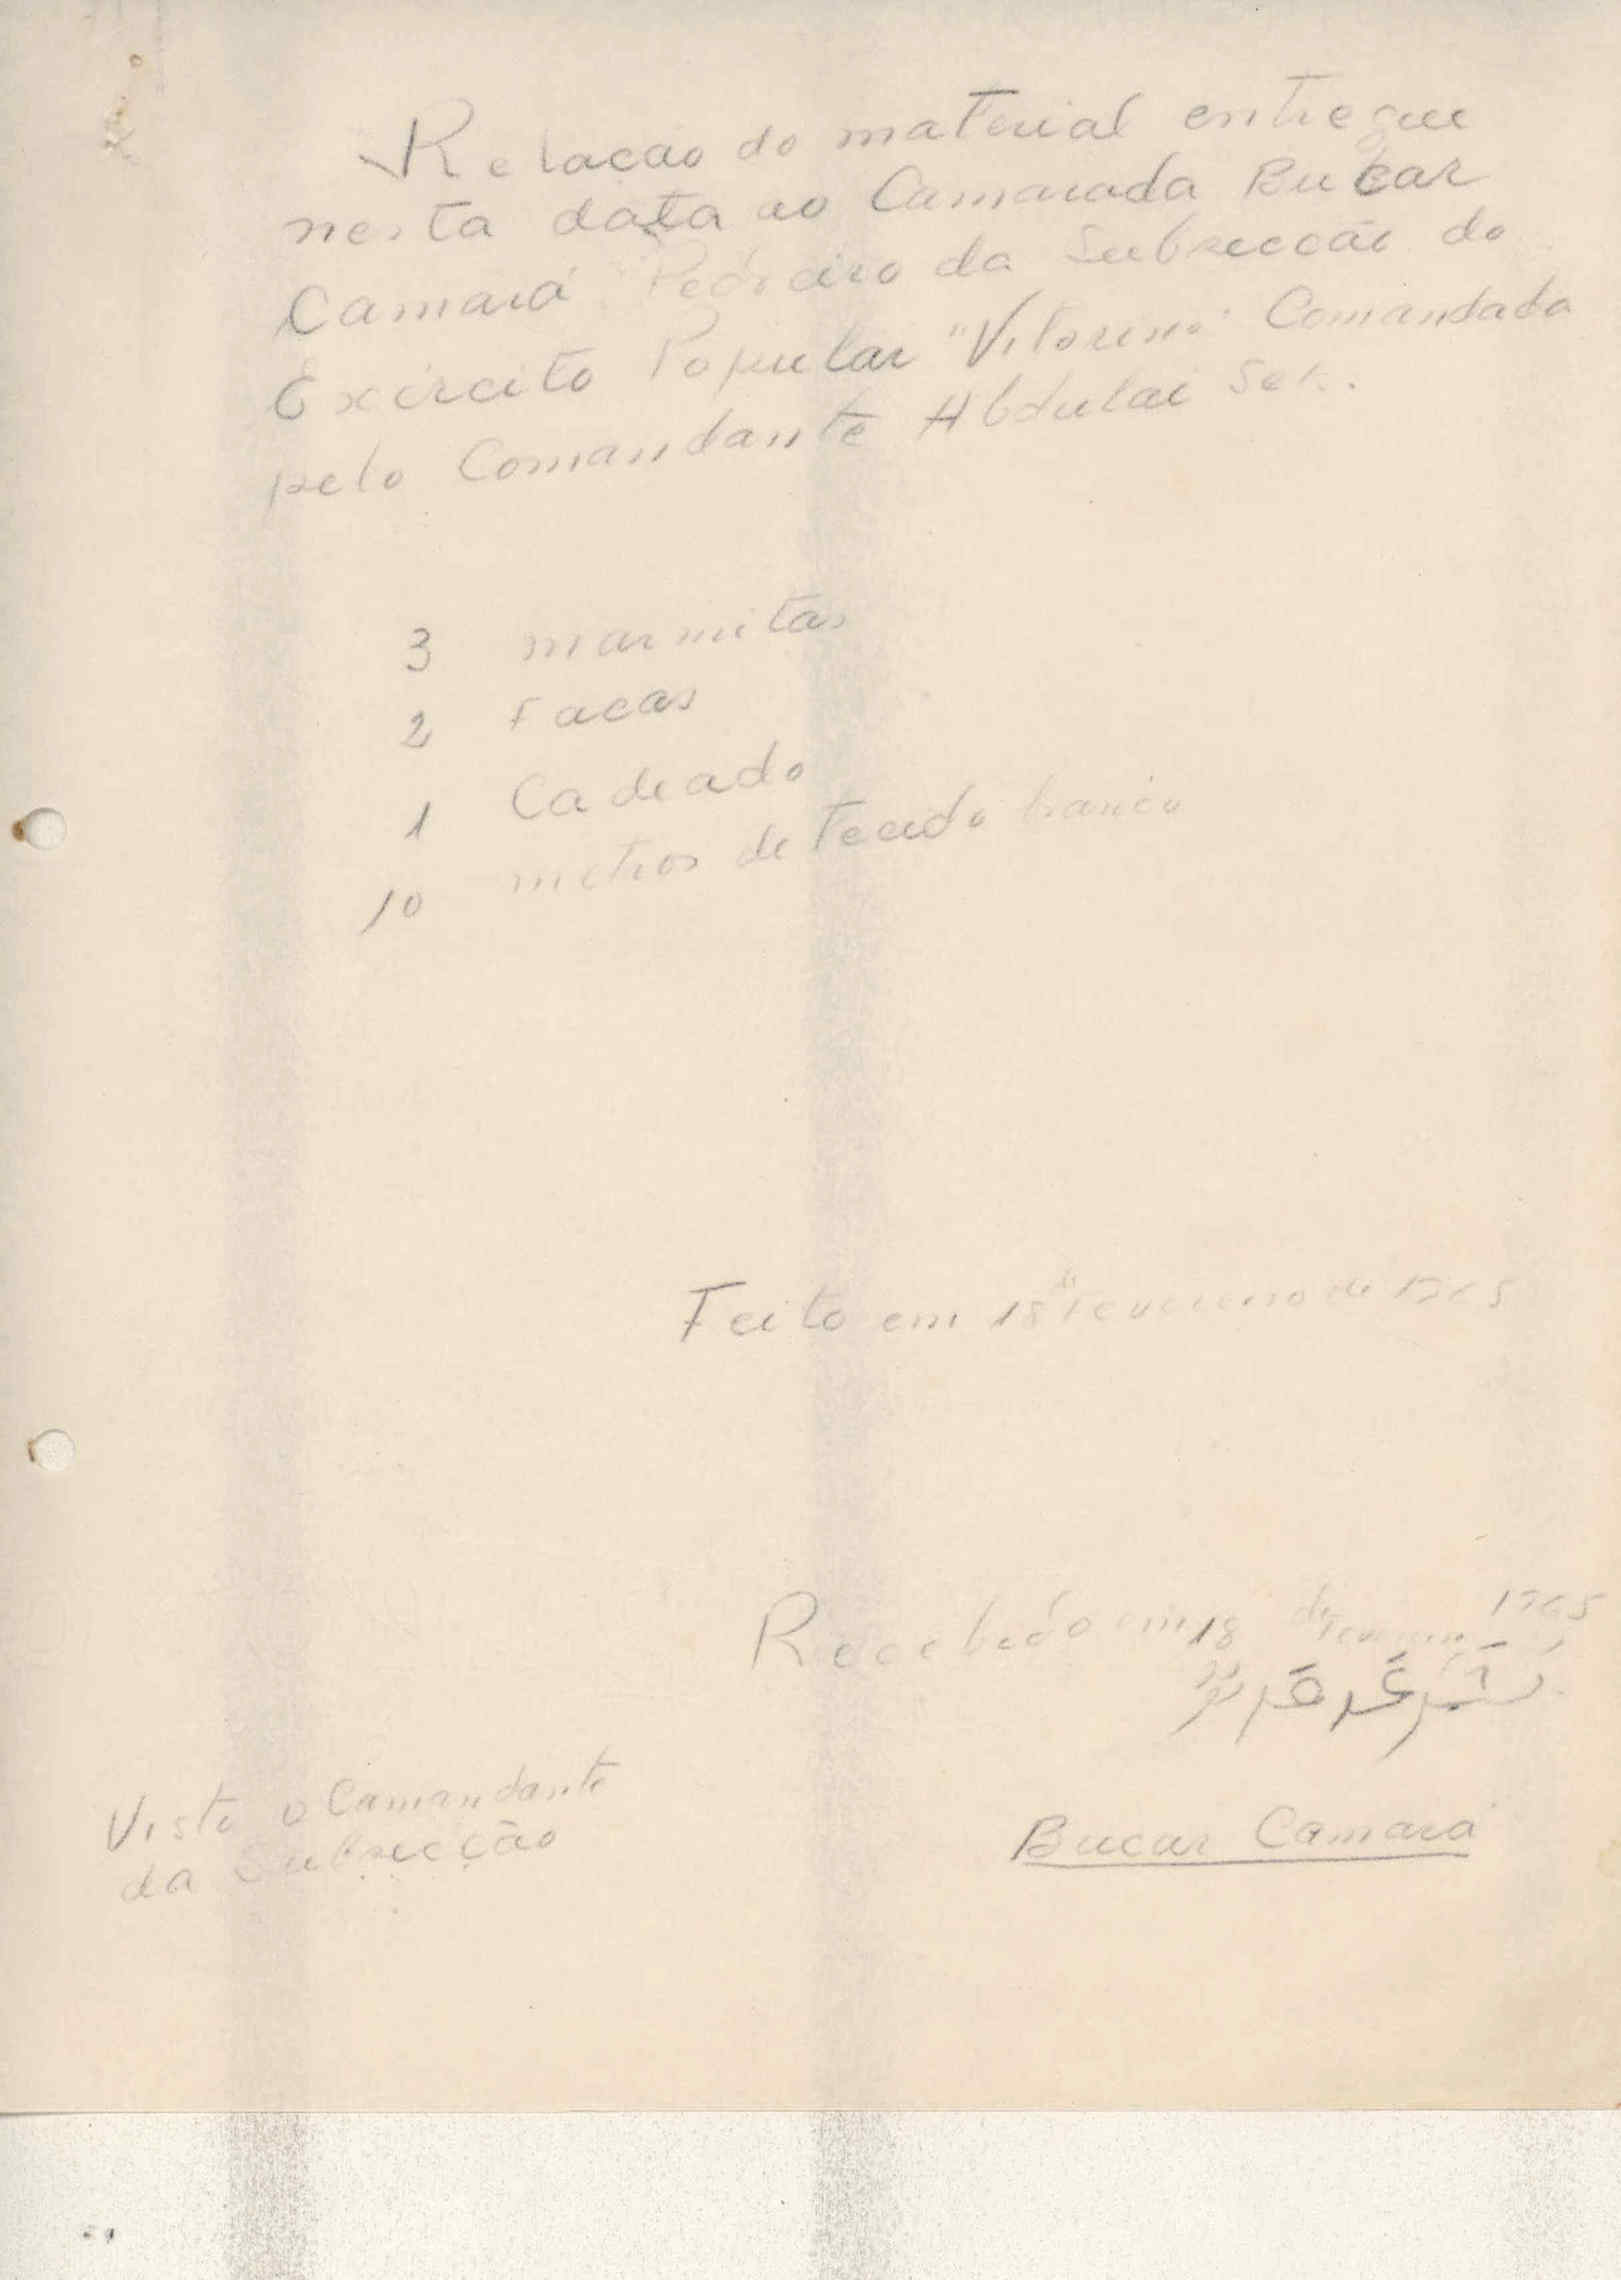 Relacão do material entregue
nesta data ao Camarada Bucar
Camará Pedreiro da Subsecção do
Exército Popular "Vitorino" Comandada
pelo Comandante Abdulai
3 marmitas
2 Facas
1 Cadeado
10 metros de tecido branco
Feito em 18 de Fevereiro de 1965
Recebido em 18 de Fevereiro 1965
Visto o Comandante
da Subsecção
Bucar Camará